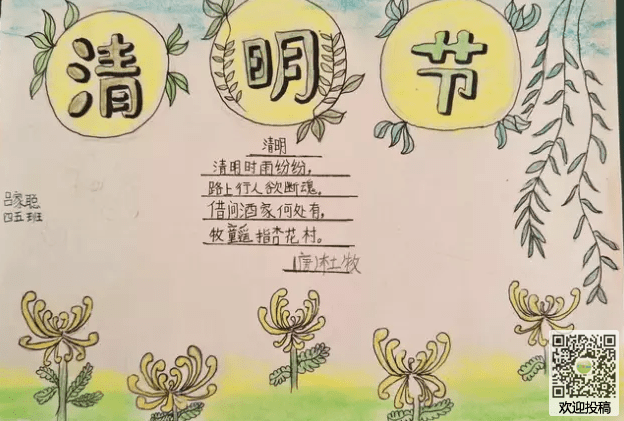 清明节
清明
清明时雨纷纷,
路上行人欲断魂。
借问酒家何处有,
牧童遥指杏花村。
(唐)杜牧
吕家聪
四五班
欢迎投稿